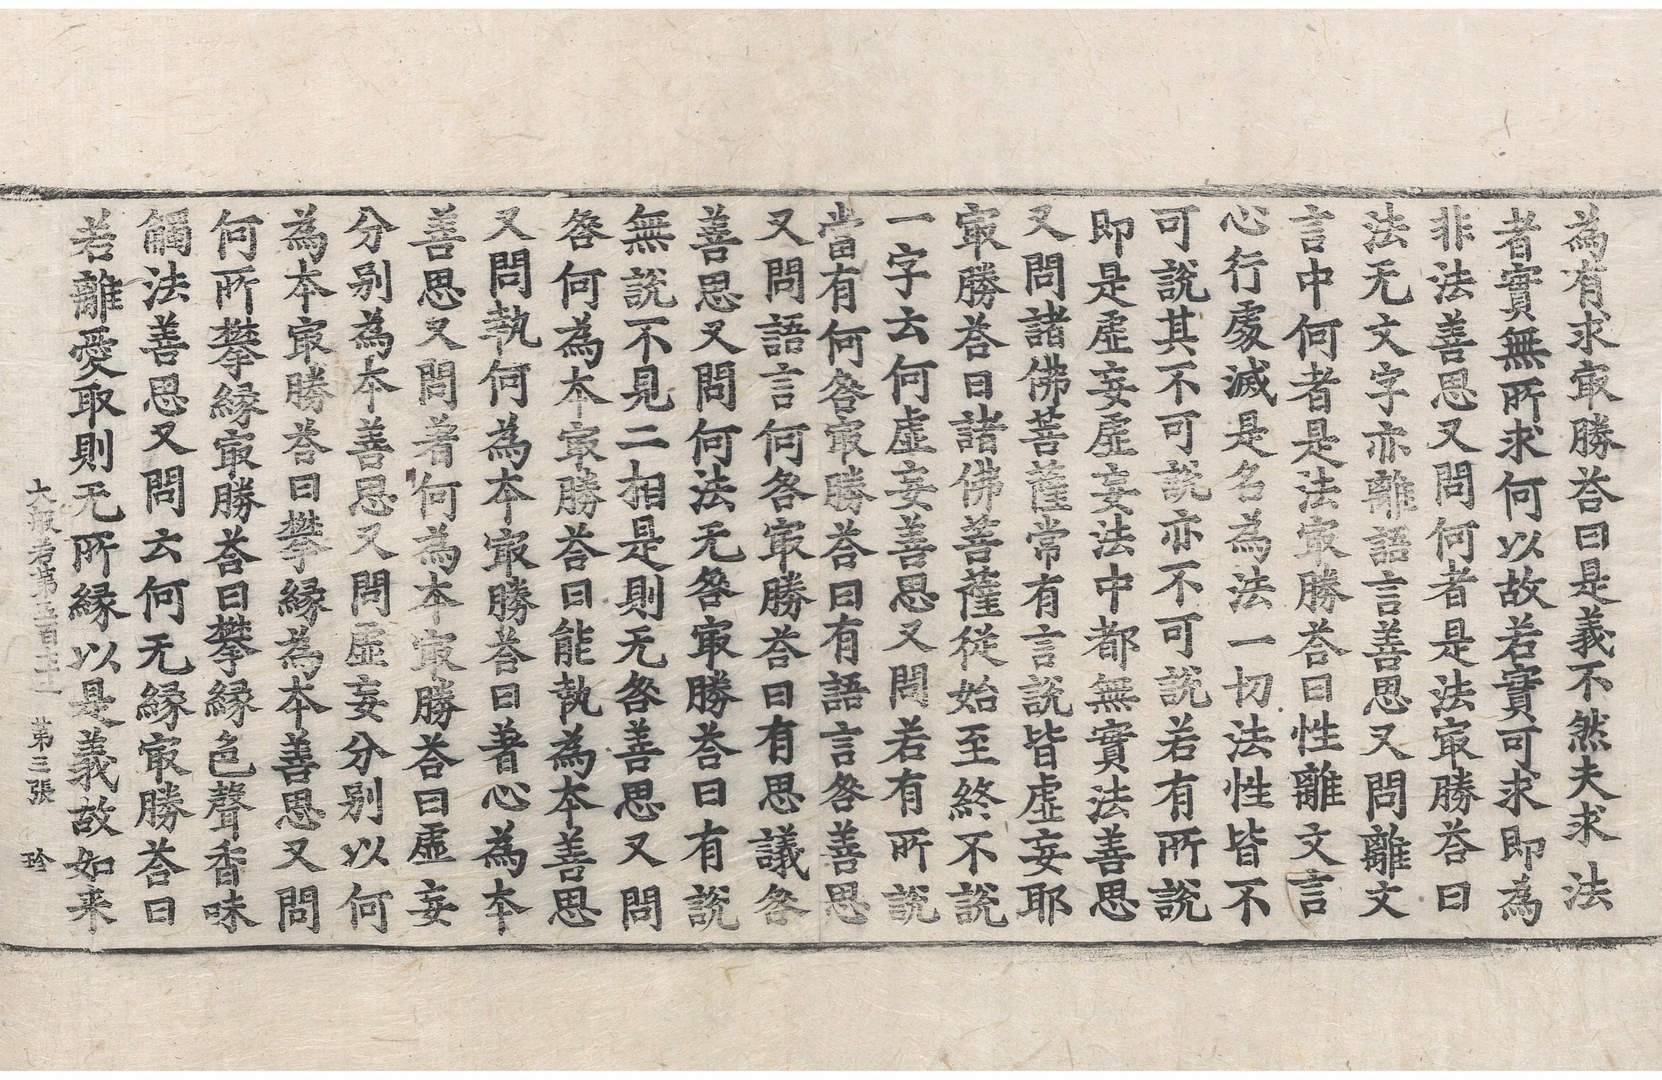 為有求㝡勝荅曰是義不然夫求法
者實無所求何以故若實可求即為
非法善思又問何者是法㝡勝荅曰
法无文字亦離語言善思又問離文
言中何者是法㝡勝荅曰性離文言
心行處滅是名為法一切法性皆不
可說其不可說亦不可說若有所說
即是虛妄虛妄法中都無實法善思
又問諸佛菩薩常有言說皆虛妄耶
㝡勝荅曰諸佛菩薩從始至終不說
一字云何虛妄善思又問若有所說
當有何咎㝡勝荅曰有語言咎善思
又問語言何咎㝡勝荅曰有思議咎
善思又問何法无咎㝡勝荅曰有說
無說不見二相是則无咎善思又問
咎何為本㝡勝荅曰能執為本善思
又問執何為本㝡勝荅曰著心為本
善思又問著何為本㝡勝荅曰虛妄
分別為本善思又問虛妄分別以何
為本㝡勝荅曰攀縁為本善思又問
何所攀縁㝡勝荅曰攀縁色聲香味
觸法善思又問云何无縁㝡勝荅曰
若離愛取則无所縁以是義故如来
大般若第五百 第三張 珍